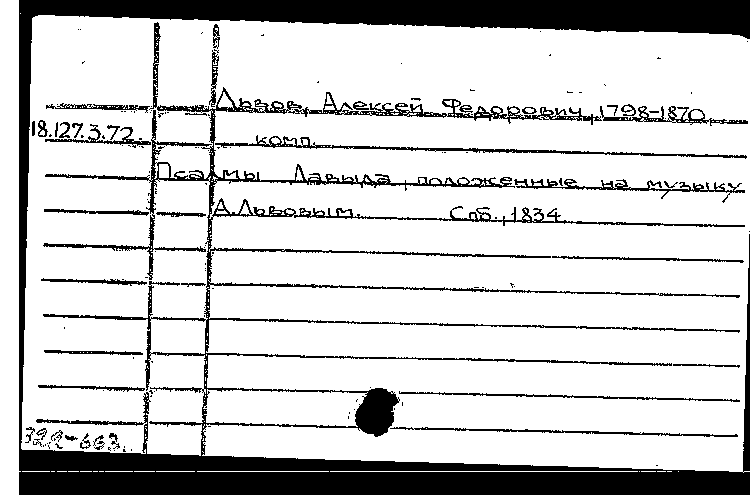 Львов, Алексей Федорович, 1798-1870,
18.127.3.72. комп.
Псалмы Давыда, положенные на музыку
А.Львовым. Спб., 1834.
322-663.